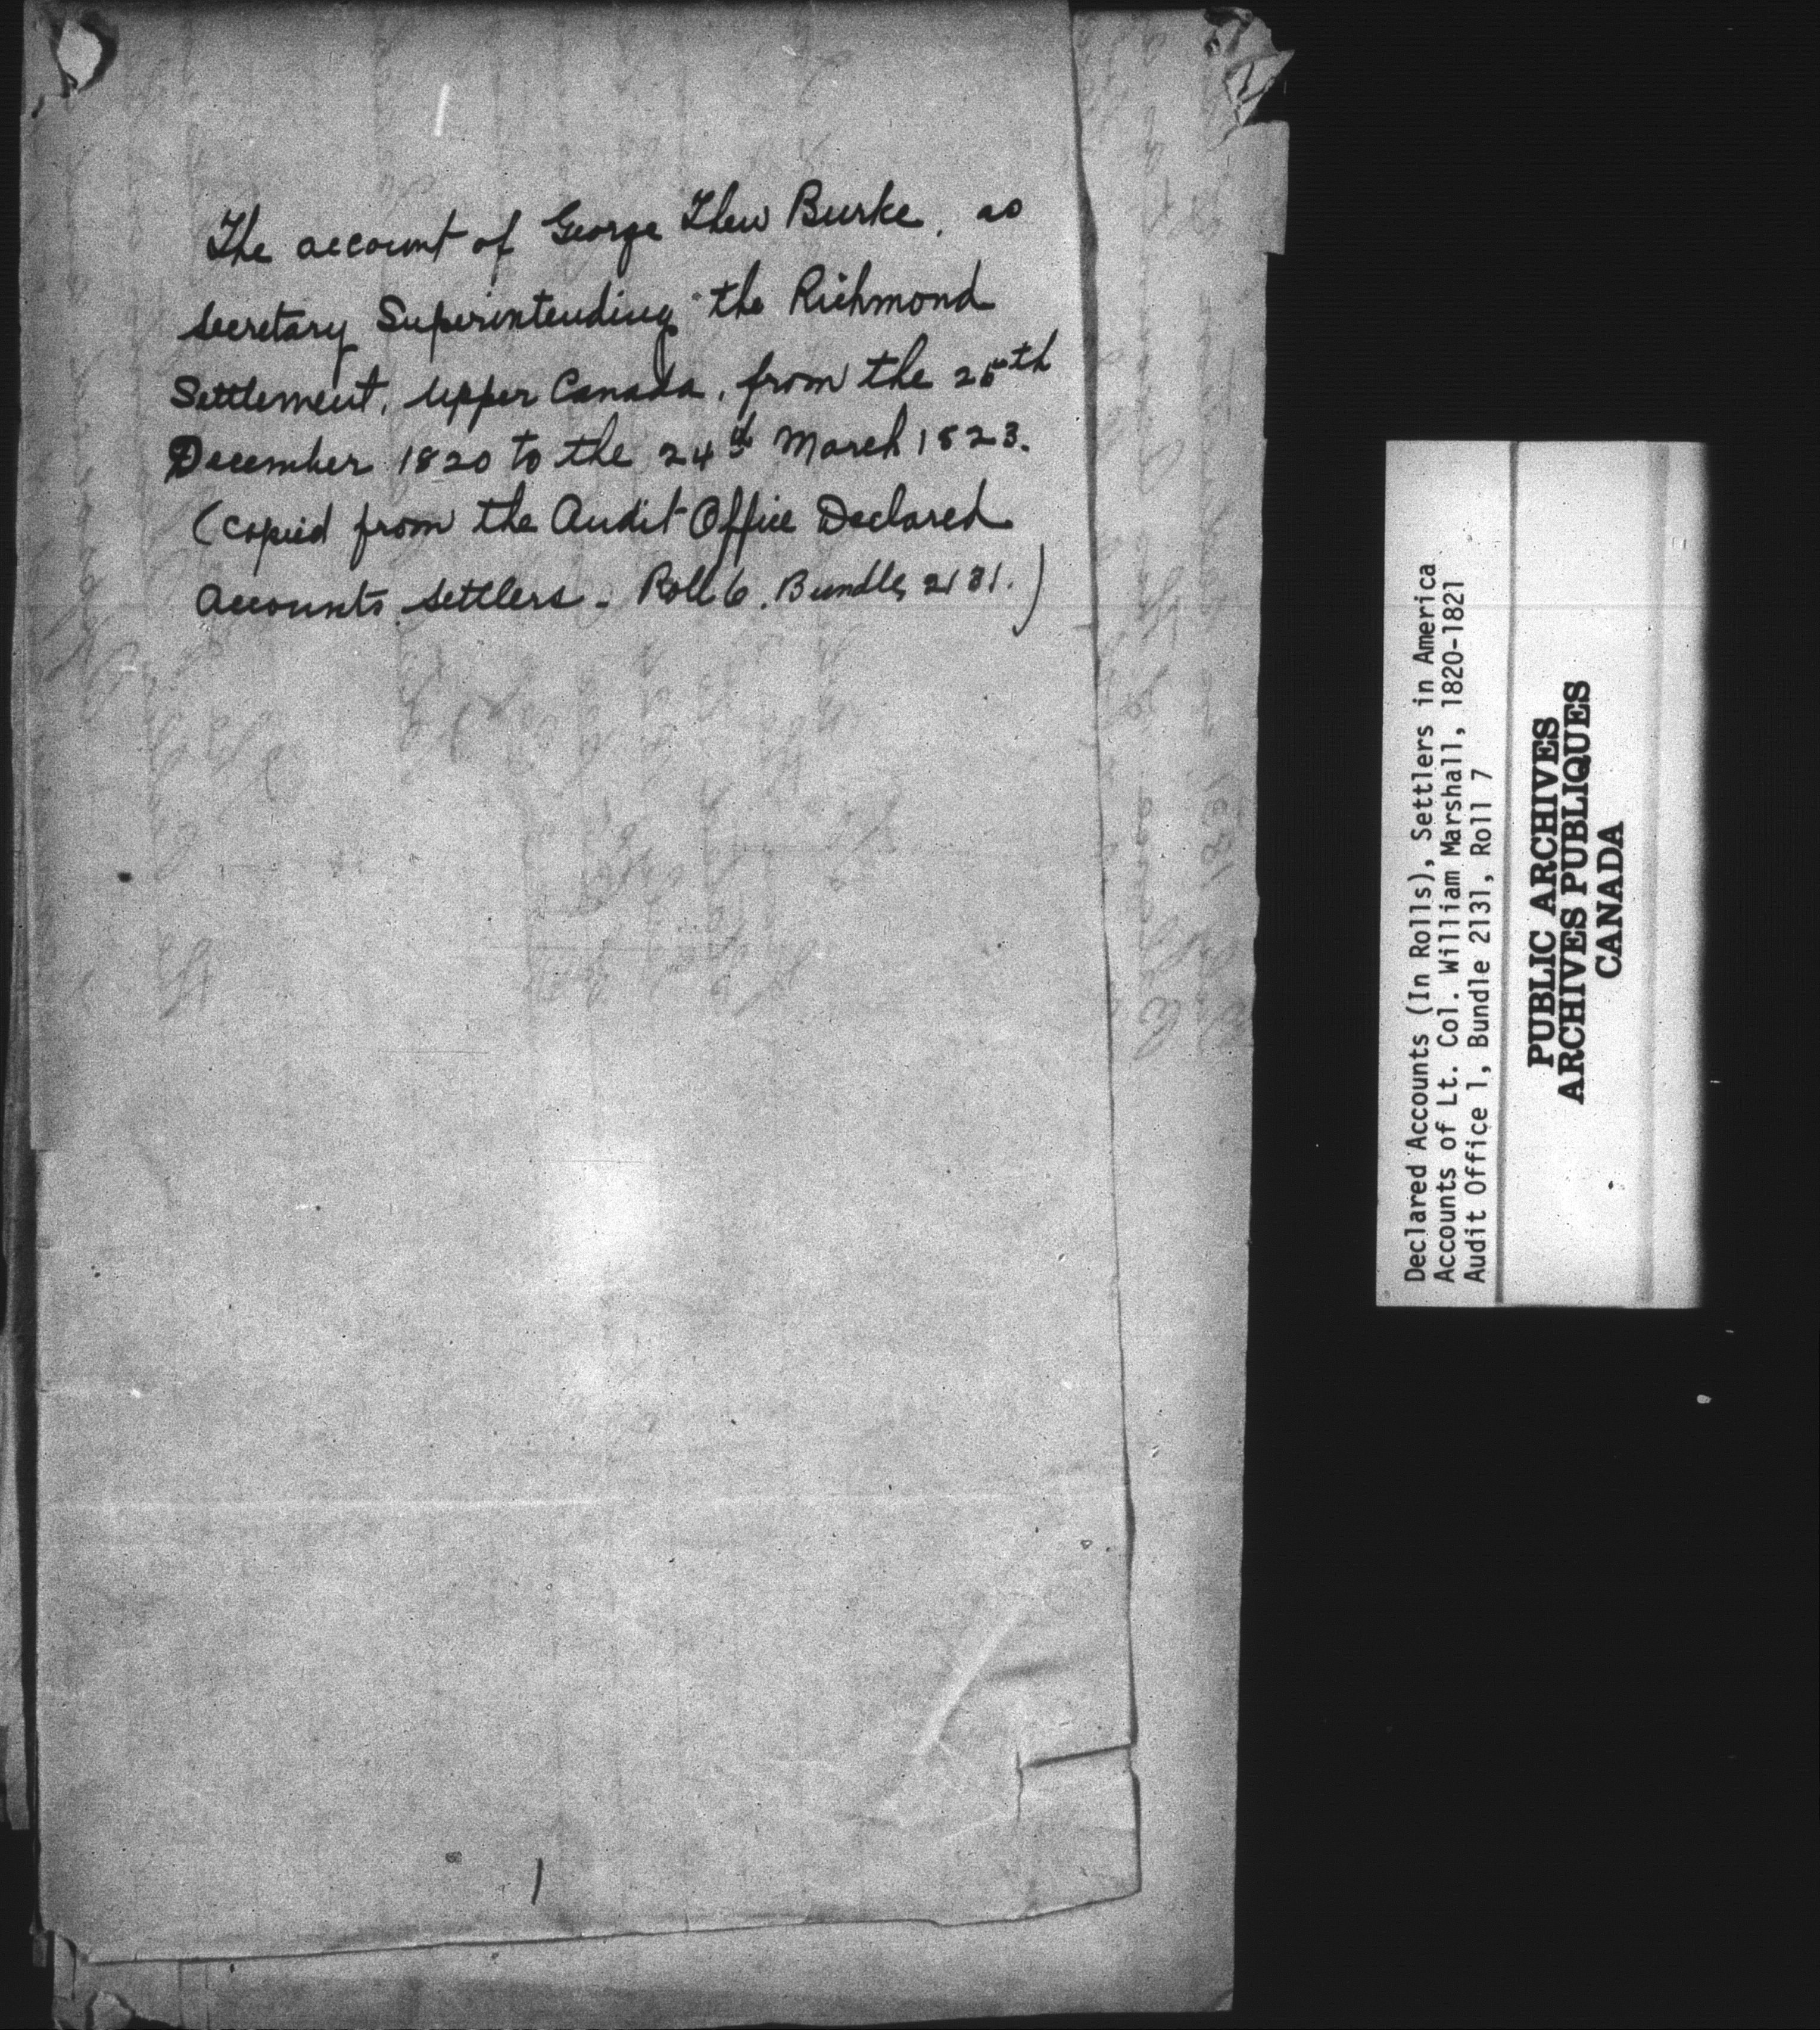 The account of George Thew Burke, as
Secretary Superintending the Richmond
Settlement, Upper Canada, from the 25th
December 1820 to the 24th March 1823.
(Copied from the Audit Office Declared
Accounts Settlers - Roll 6. Bundle 2131.)
Declared Accounts (In Rolls), Settlers in America
Accounts of Lt. Col. William Marshall, 1820-1821
Audit Office 1, Bundle 2131, Roll 7
PUBLIC ARCHIVES
ARCHIVES PUBLIQUES
CANADA